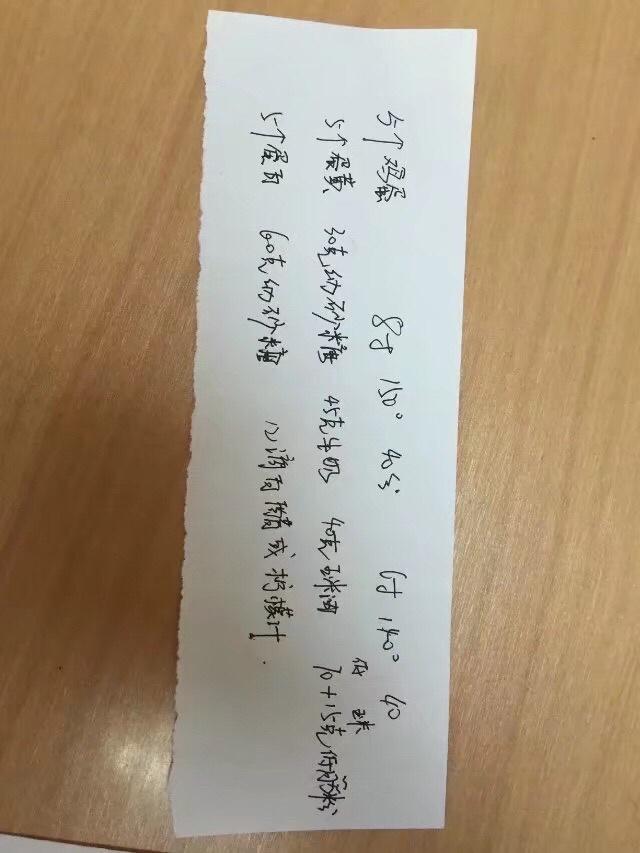 5个鸡蛋 8寸 150° 40分 6寸 140° 40
低 玉米
5个蛋黄 30克幼砂糖 45克牛奶 40克玉米油 70+15克低筋粉
5个蛋白 60克幼砂糖 12滴白醋或柠檬汁.